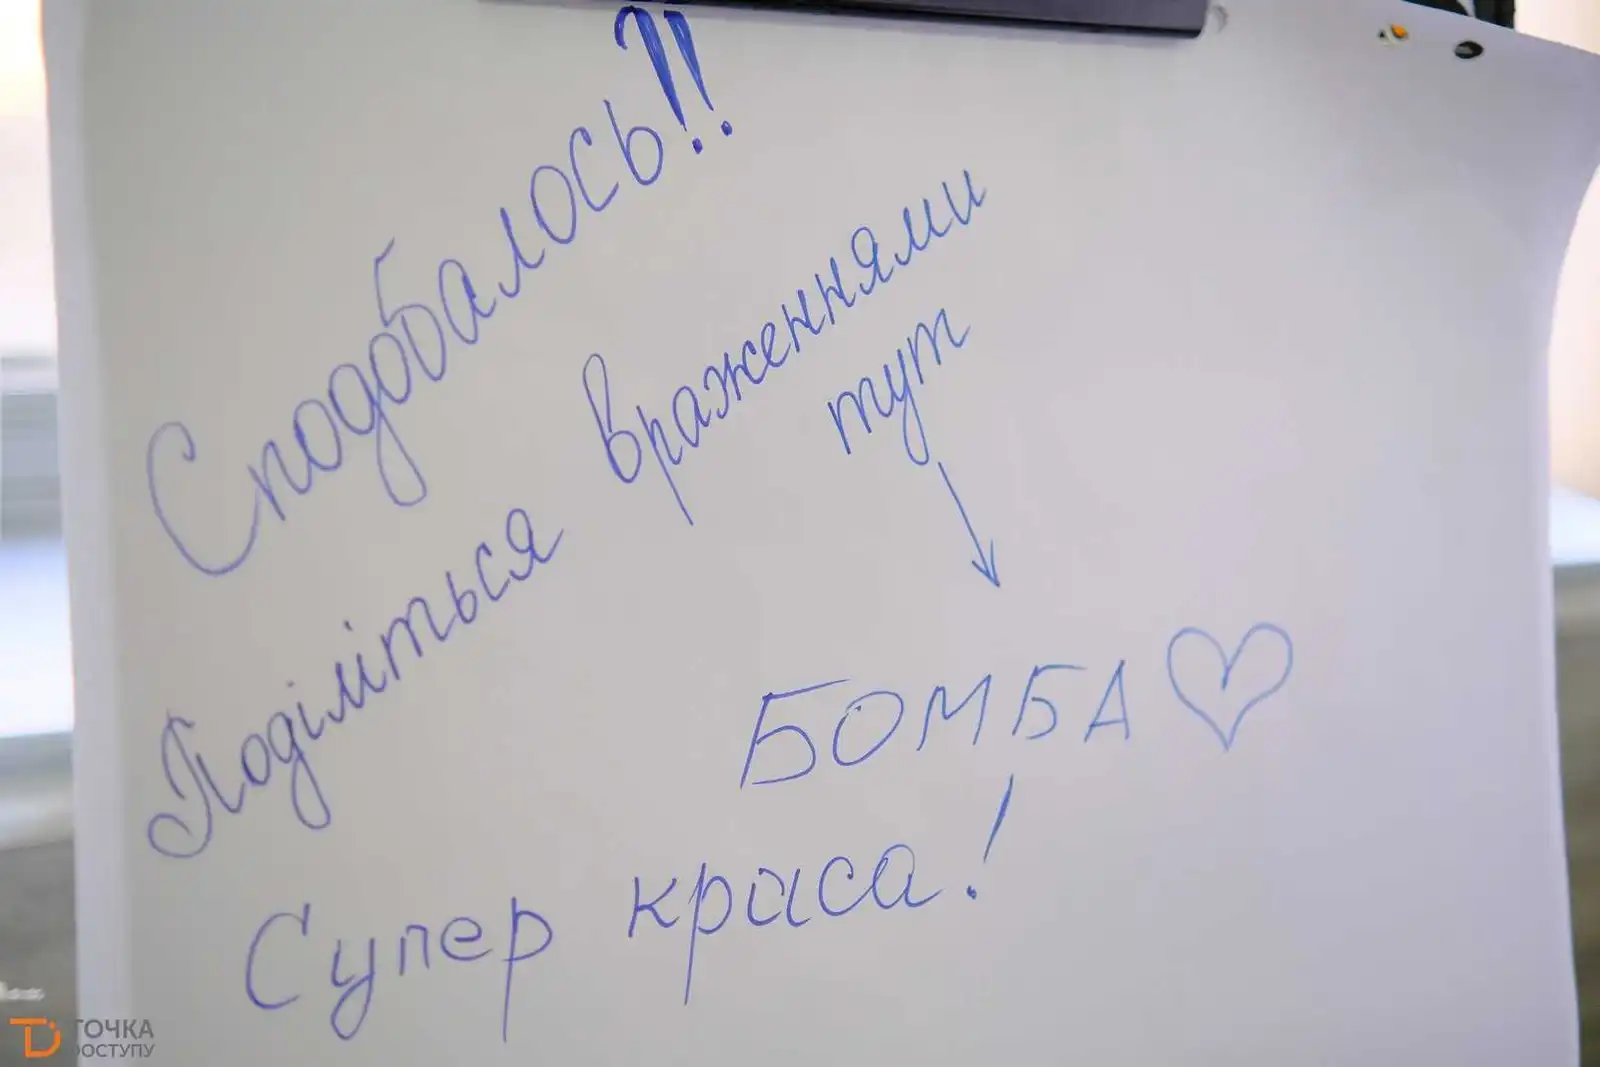 Сподобалось!!
Поділіться враженнями
тут
БОМБА
Супер краса!
ТОЧКА
ДОСТУПУ